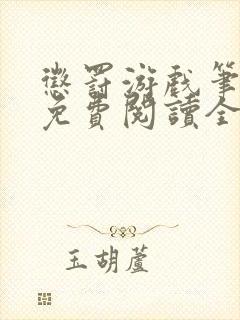 懲罰游戲筆
免費閱讀全
玉胡蘆